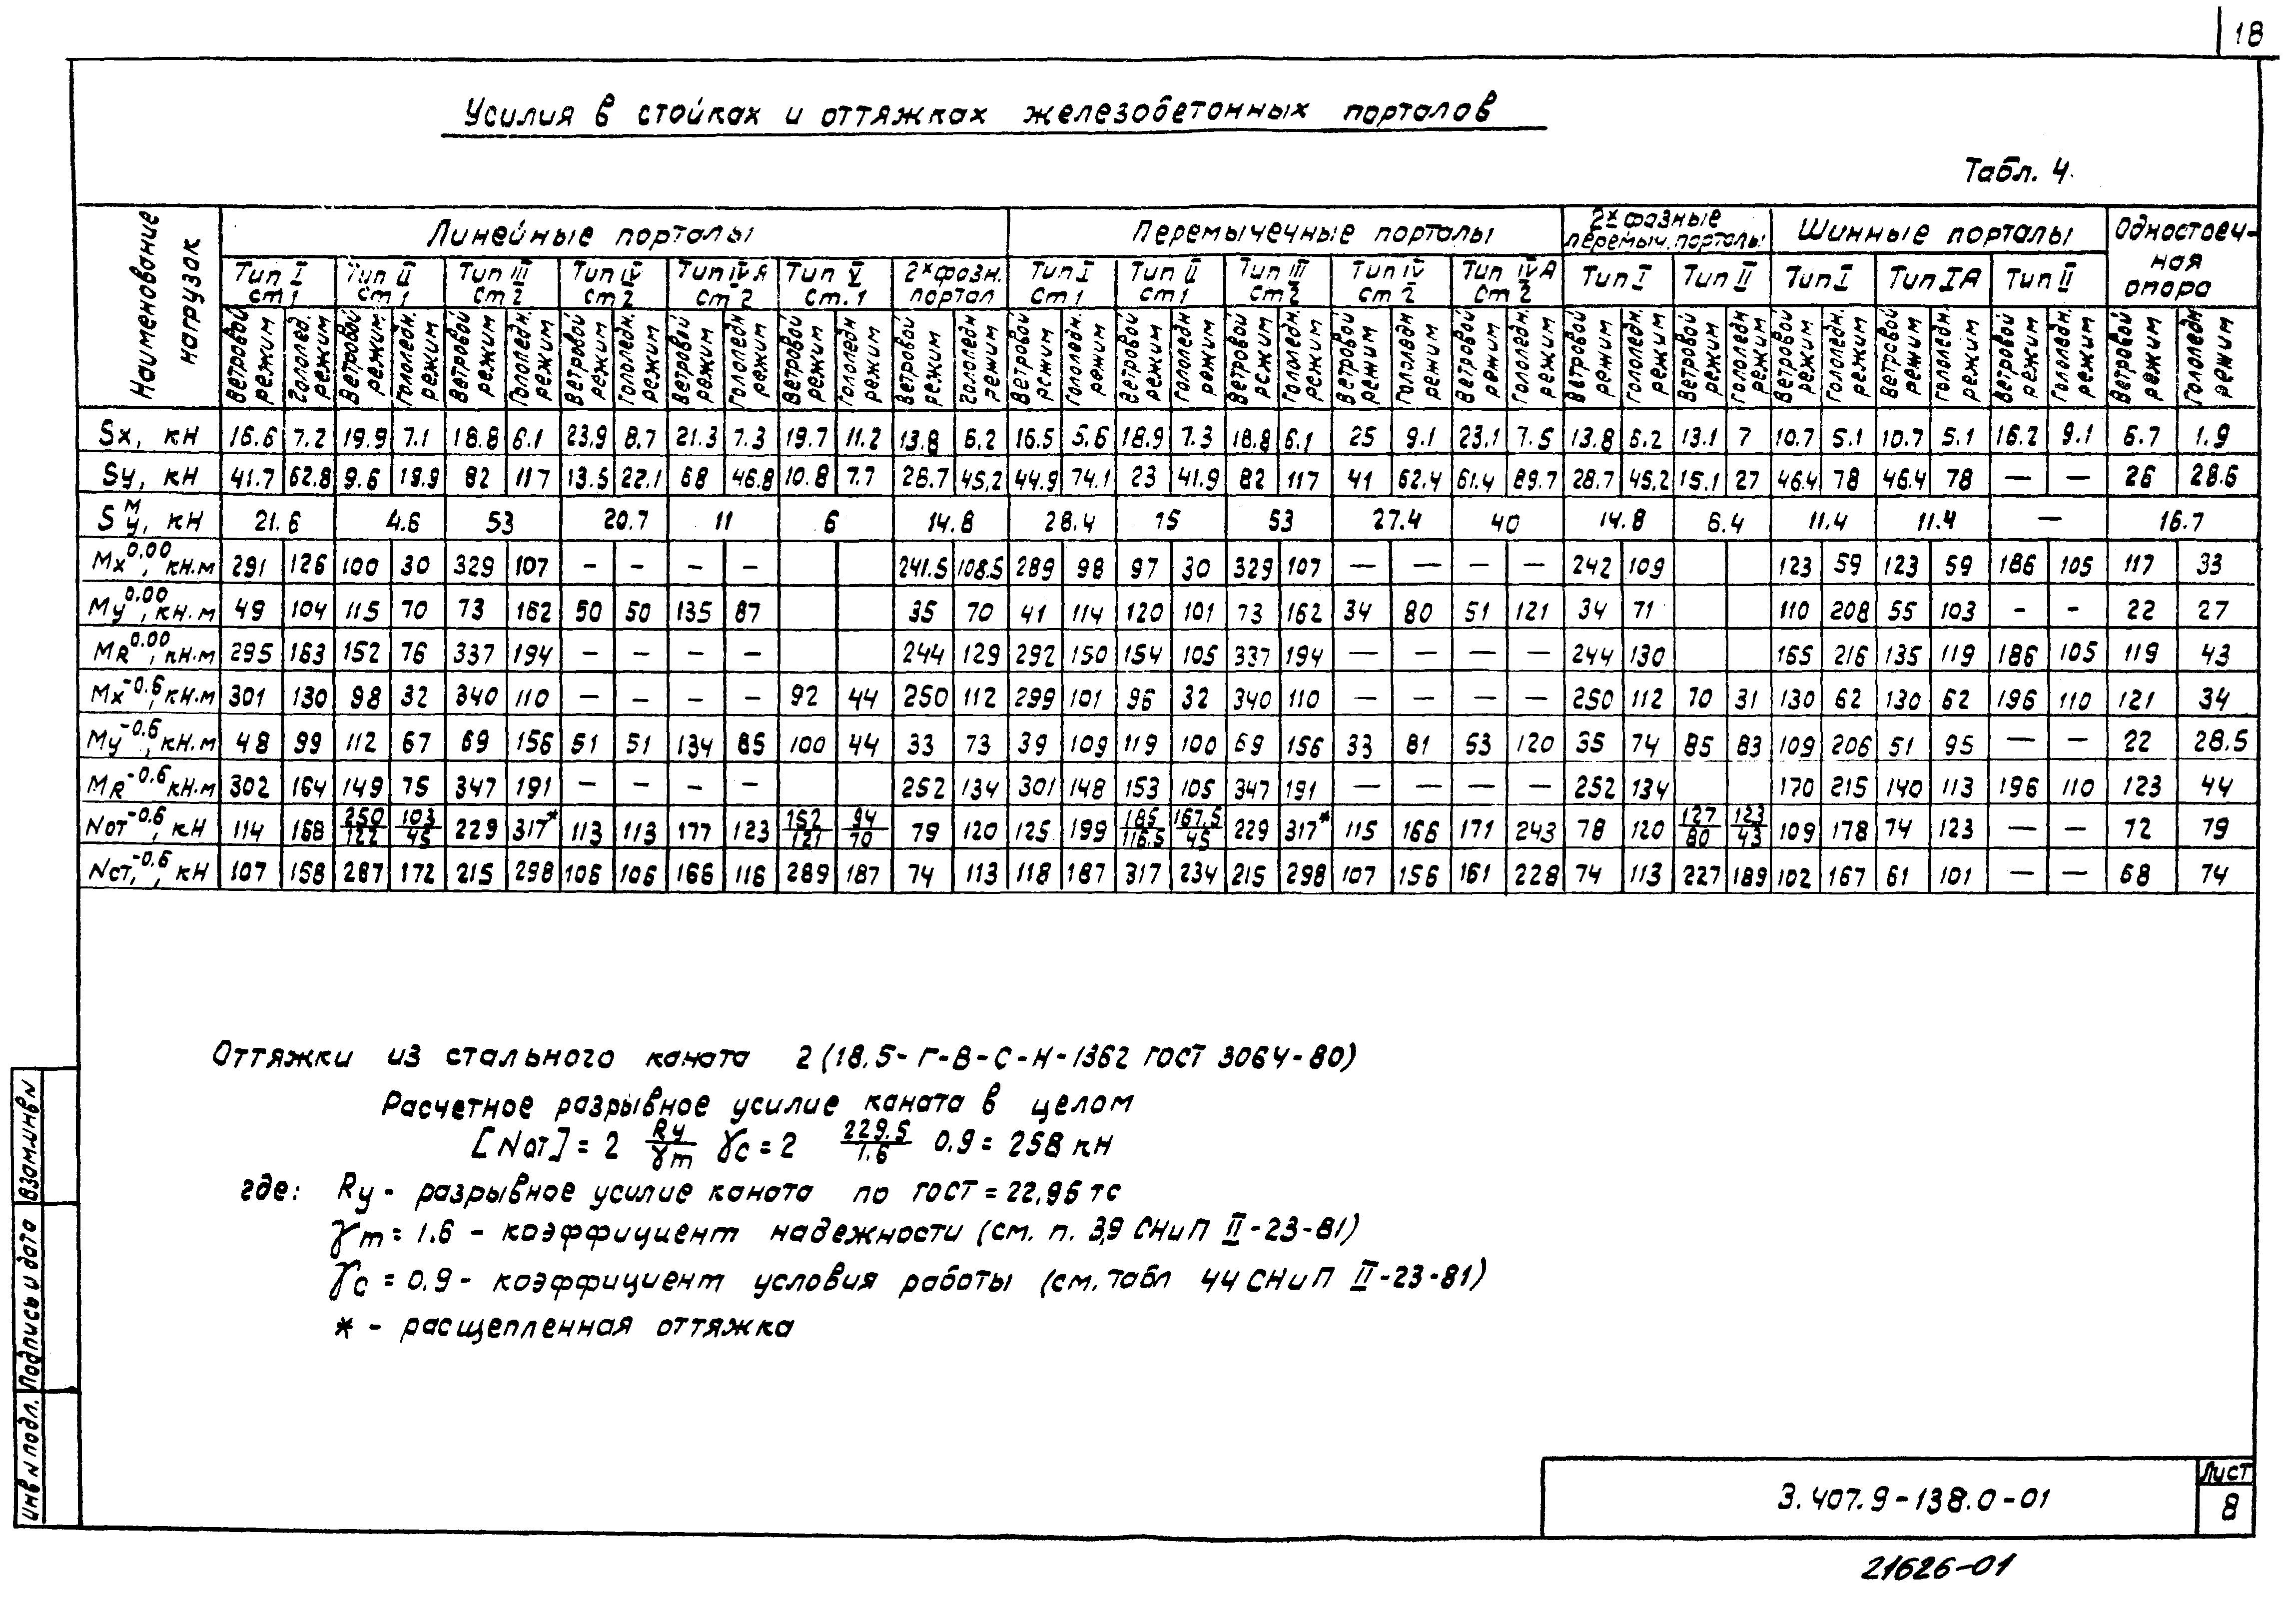 18
Усилия в стойках и оттяжках железобетонных порталов
Табл. 4.
Наименование нагрузок
Линейные порталы
Перемычечные порталы
2х фазные перемыч. порталы
Шинные порталы
Одностоеч-ная опора
Тип I ст 1 Тип II ст 1 Тип III ст 2 Тип IV ст 2 Тип IV А ст 2 Тип V ст. 1 2х фазн. портал Тип I ст 1 Тип II ст 1 Тип III ст 2 Тип IV ст 2 Тип IV А ст 2 Тип I Тип II Тип I Тип I А Тип II
Ветровой режим Гололед. режим Ветровой режим Гололедн. режим Ветровой режим Гололедн. режим Ветровой режим Гололедн. режим Ветровой режим Гололедн режим Ветровой режим Гололедн режим Ветровой режим Гололедн режим Ветровой режим Гололедн. режим Ветровой режим Гололедн режим Ветровой режим Гололедн режим Ветровой режим Гололедн режим Ветровой режим Гололедн. режим Ветровой режим Гололедн. режим Ветровой режим Гололедн режим Ветровой режим Гололедн. режим Ветровой режим Гололедн. режим Ветровой режим Гололедн. режим Ветровой режим Гололедн режим
Sx, кН 16.6 7.2 19.9 7.1 18.8 6.1 23.9 8.7 21.3 7.3 19.7 11.2 13.8 6.2 16.5 5.6 18.9 7.3 18.8 6.1 25 9.1 23.1 7.5 13.8 6.2 13.1 7 10.7 5.1 10.7 5.1 16.2 9.1 6.7 1.9
Sy, кН 41.7 62.8 9.6 19.9 82 117 13.5 22.1 68 46.8 10.8 7.7 28.7 45.2 44.9 74.1 23 41.9 82 117 41 62.4 61.4 89.7 28.7 45.2 15.1 27 46.4 78 46.4 78 — — 26 28.6
S м у, кН 21.6 4.6 53 20.7 11 6 14.8 28.4 15 53 27.4 40 14.8 6.4 11.4 11.4 — 16.7
Mx 0,00, кН.м 291 126 100 30 329 107 – – – – 241.5 108.5 289 98 97 30 329 107 — — — — 242 109 123 59 123 59 186 105 117 33
My 0.00, кН.м 49 104 115 70 73 162 50 50 135 87 35 70 41 114 120 101 73 162 34 80 51 121 34 71 110 208 55 103 – – 22 27
MR 0.00, кН.м 295 163 152 76 337 194 — — — — 244 129 292 150 154 105 337 194 — — — — 244 130 165 216 135 119 186 105 119 43
Mx -0.6, кН.м 301 130 98 32 340 110 — — — — 92 44 250 112 299 101 96 32 340 110 — — — — 250 112 70 31 130 62 130 62 196 110 121 34
My -0.6, кН.м 48 99 112 67 69 156 51 51 134 85 100 44 33 73 39 109 119 100 69 156 33 81 53 120 35 74 85 83 109 206 51 95 — — 22 28.5
MR -0.6 кН.м 302 164 149 75 347 191 — — — — 252 134 301 148 153 105 347 191 — — — — 252 134 170 215 140 113 196 110 123 44
Nот -0.6, кН 114 168 250/122 103/45 229 317* 113 113 177 123 152/121 94/70 79 120 125 199 185/116.5 167.5/45 229 317* 115 166 171 243 78 120 127/80 123/43 109 178 74 123 — — 72 79
Nст, -0.6, кН 107 158 287 172 215 298 106 106 166 116 289 187 74 113 118 187 317 234 215 298 107 156 161 228 74 113 227 189 102 167 61 101 — — 68 74
Оттяжки из стального каната 2 (18.5-Г-В-С-Н-1362 ГОСТ 3064-80)
Расчетное разрывное усилие каната в целом
[Nот] = 2 Ry/γm γc = 2 229.5/1.6 0.9 = 258 кН
где: Ry - разрывное усилие каната по ГОСТ = 22,95 тс
γm = 1.6 - коэффициент надежности (см. п. 3,9 СНиП II-23-81)
γc = 0.9 - коэффициент условия работы (см. табл 44 СНиП II-23-81)
* - расщепленная оттяжка
Инв N подл. Подпись и дата Взам.инв N
3.407.9-138.0-01
Лист
8
21626-01